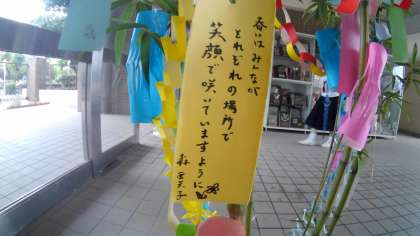 春はみんなが
それぞれの場所で
笑顔で咲いていますように
森